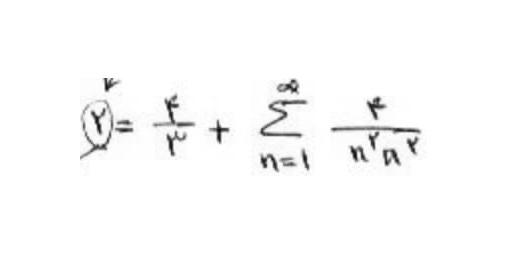 ۲ = ۴/۳ + ∑_{n=1}^{∞} ۴/(n^۲ π^۲)